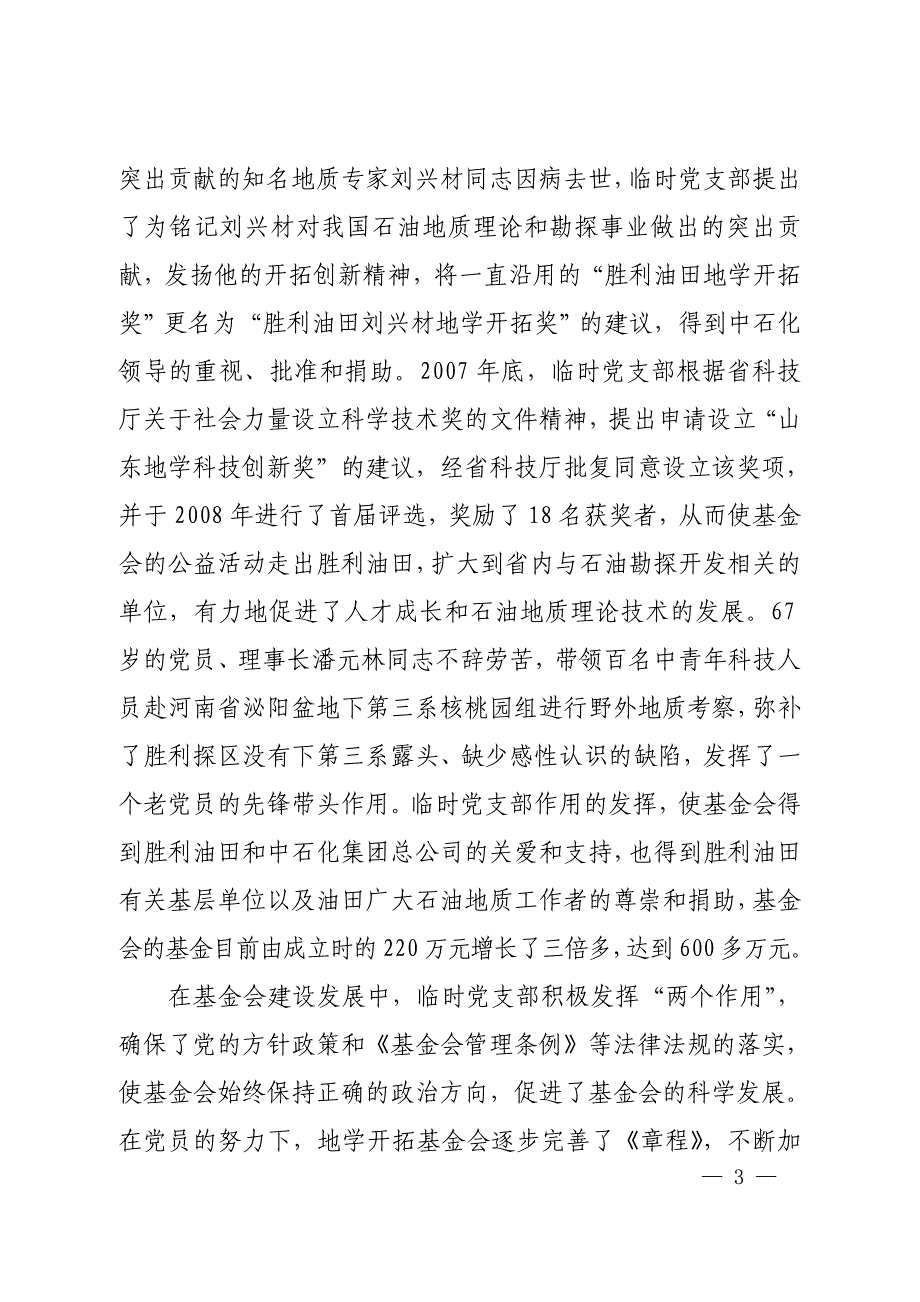 突出贡献的知名地质专家刘兴材同志因病去世，临时党支部提出
了为铭记刘兴材对我国石油地质理论和勘探事业做出的突出贡
献，发扬他的开拓创新精神，将一直沿用的“胜利油田地学开拓
奖”更名为“胜利油田刘兴材地学开拓奖”的建议，得到中石化
领导的重视、批准和捐助。2007 年底，临时党支部根据省科技
厅关于社会力量设立科学技术奖的文件精神，提出申请设立“山
东地学科技创新奖”的建议，经省科技厅批复同意设立该奖项，
并于 2008 年进行了首届评选，奖励了 18 名获奖者，从而使基金
会的公益活动走出胜利油田，扩大到省内与石油勘探开发相关的
单位，有力地促进了人才成长和石油地质理论技术的发展。67
岁的党员、理事长潘元林同志不辞劳苦，带领百名中青年科技人
员赴河南省泌阳盆地下第三系核桃园组进行野外地质考察，弥补
了胜利探区没有下第三系露头、缺少感性认识的缺陷，发挥了一
个老党员的先锋带头作用。临时党支部作用的发挥，使基金会得
到胜利油田和中石化集团总公司的关爱和支持，也得到胜利油田
有关基层单位以及油田广大石油地质工作者的尊崇和捐助，基金
会的基金目前由成立时的 220 万元增长了三倍多，达到 600 多万元。
在基金会建设发展中，临时党支部积极发挥“两个作用”，
确保了党的方针政策和《基金会管理条例》等法律法规的落实，
使基金会始终保持正确的政治方向，促进了基金会的科学发展。
在党员的努力下，地学开拓基金会逐步完善了《章程》，不断加
— 3 —